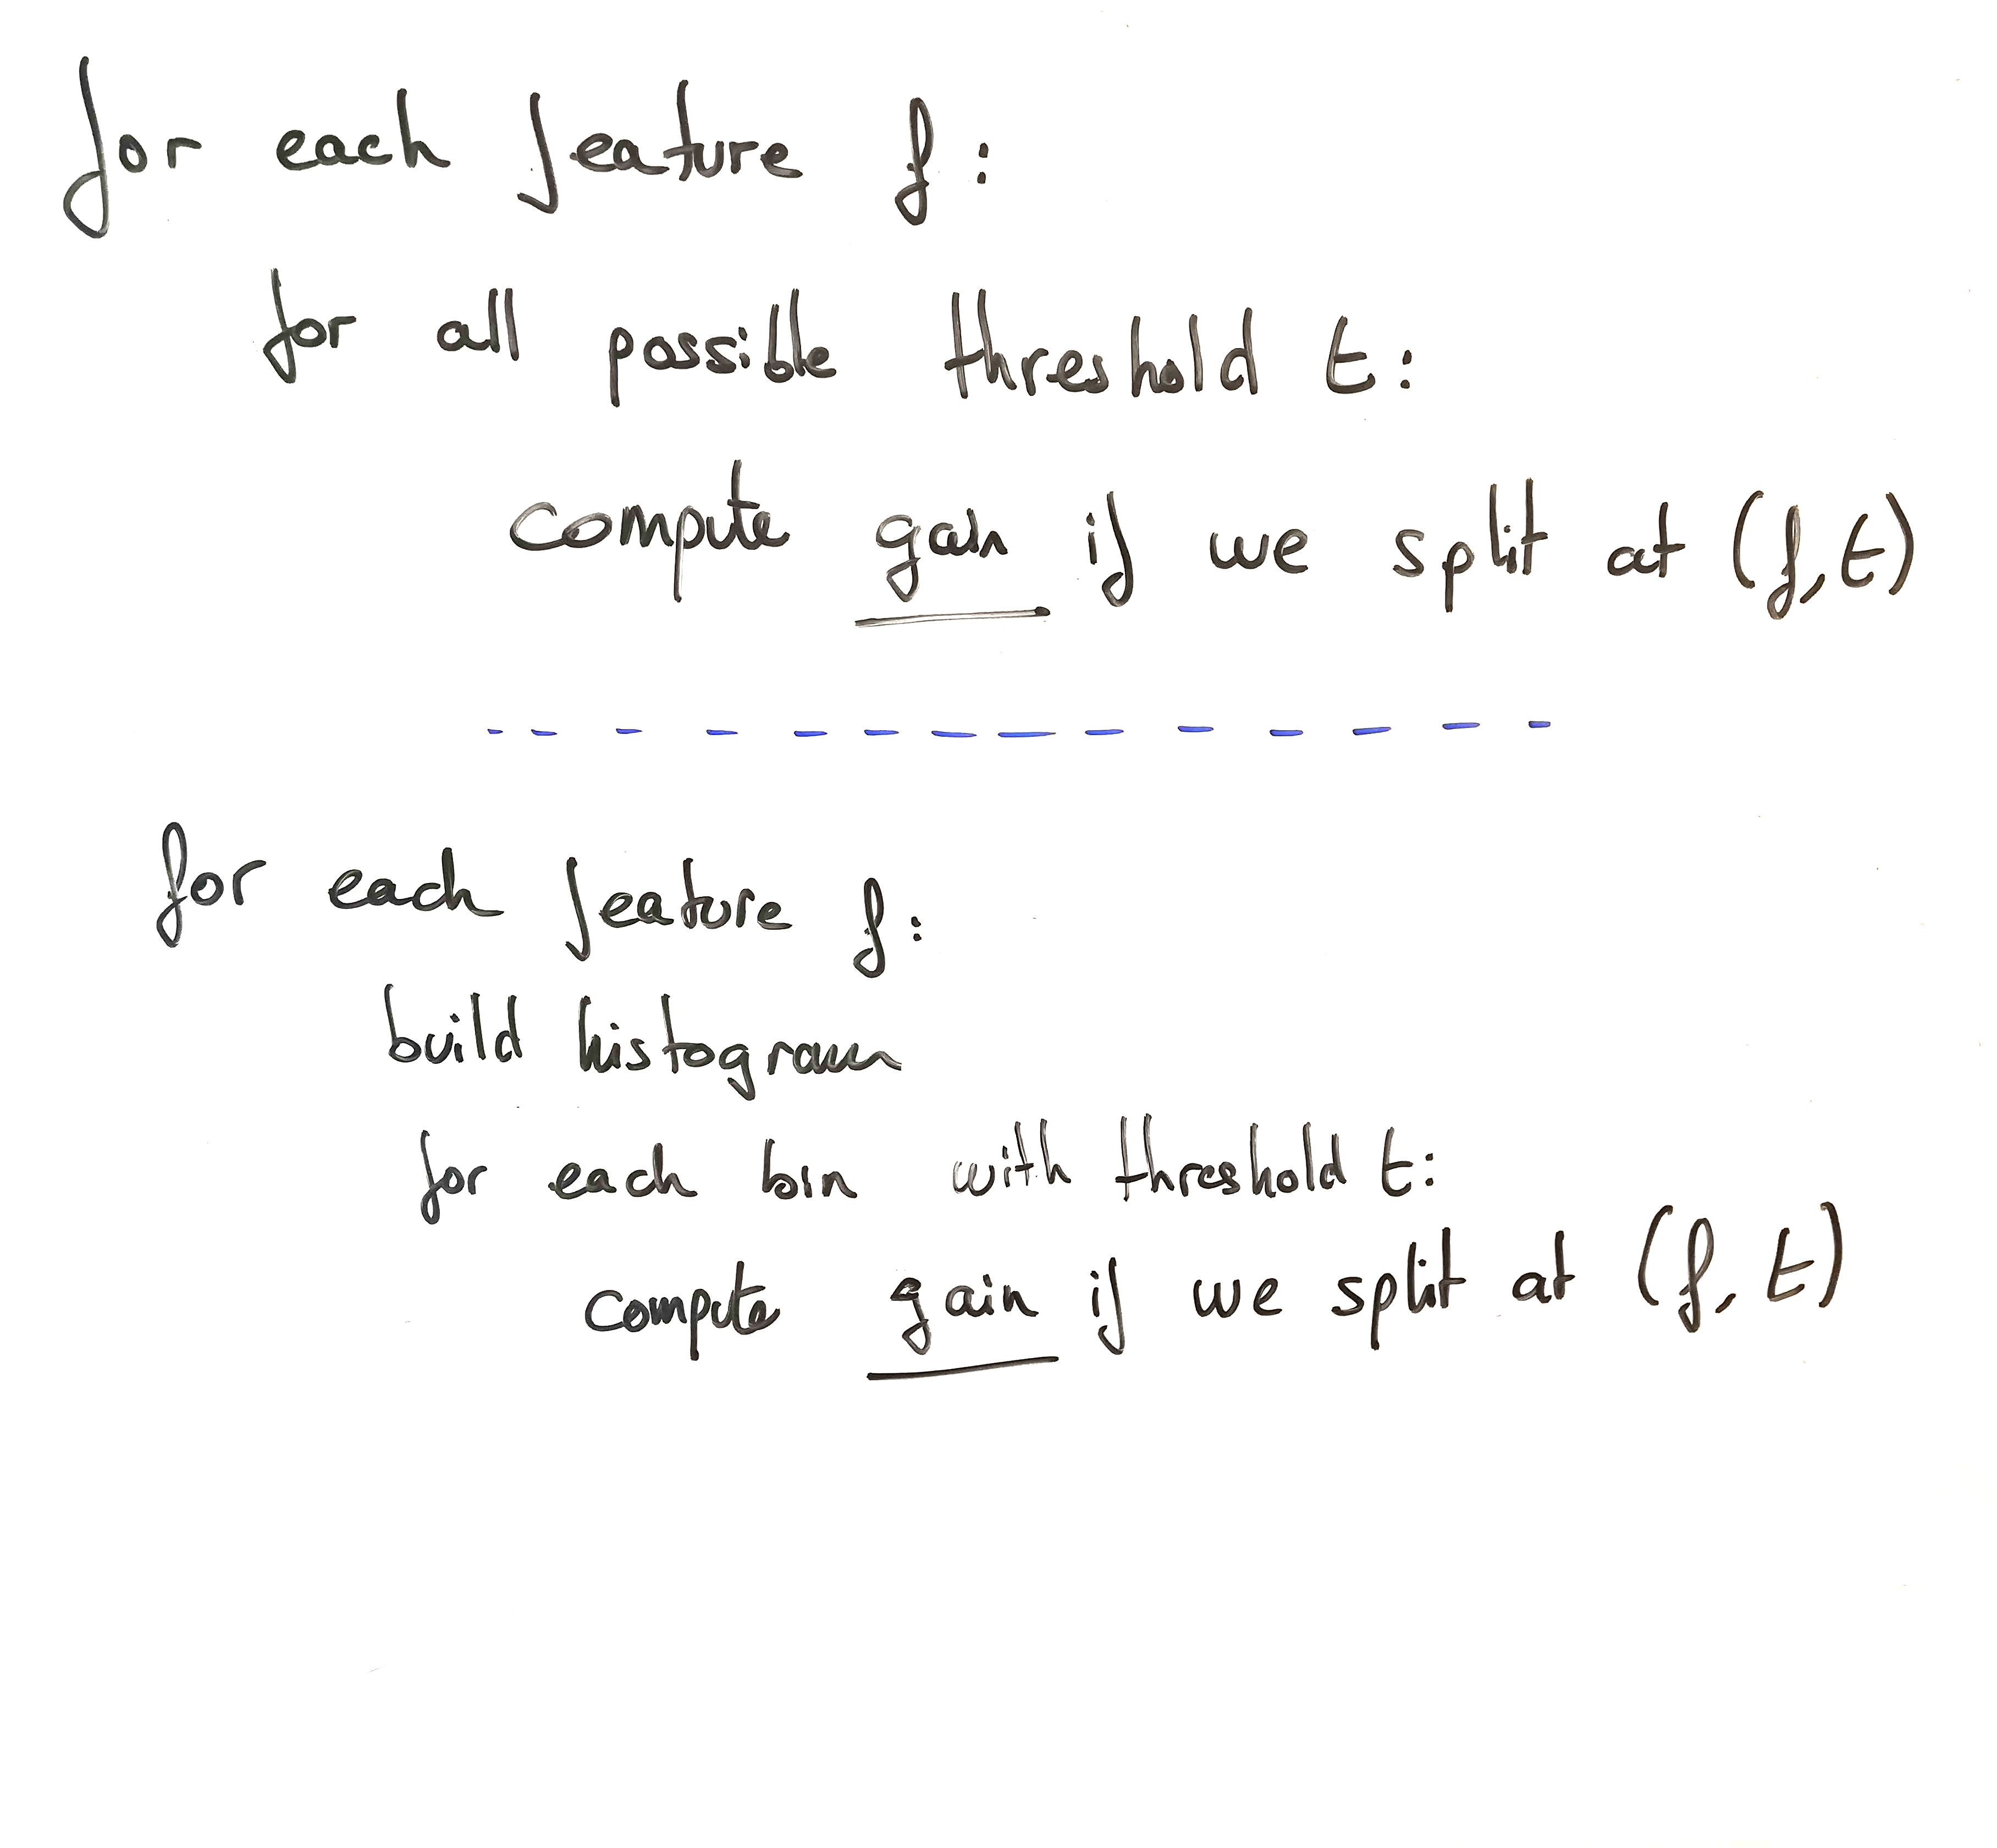 for each feature f:
for all possible threshold t:
compute gain if we split at (f,t)
for each feature f:
build histogram
for each bin with threshold t:
compute gain if we split at (f, t)